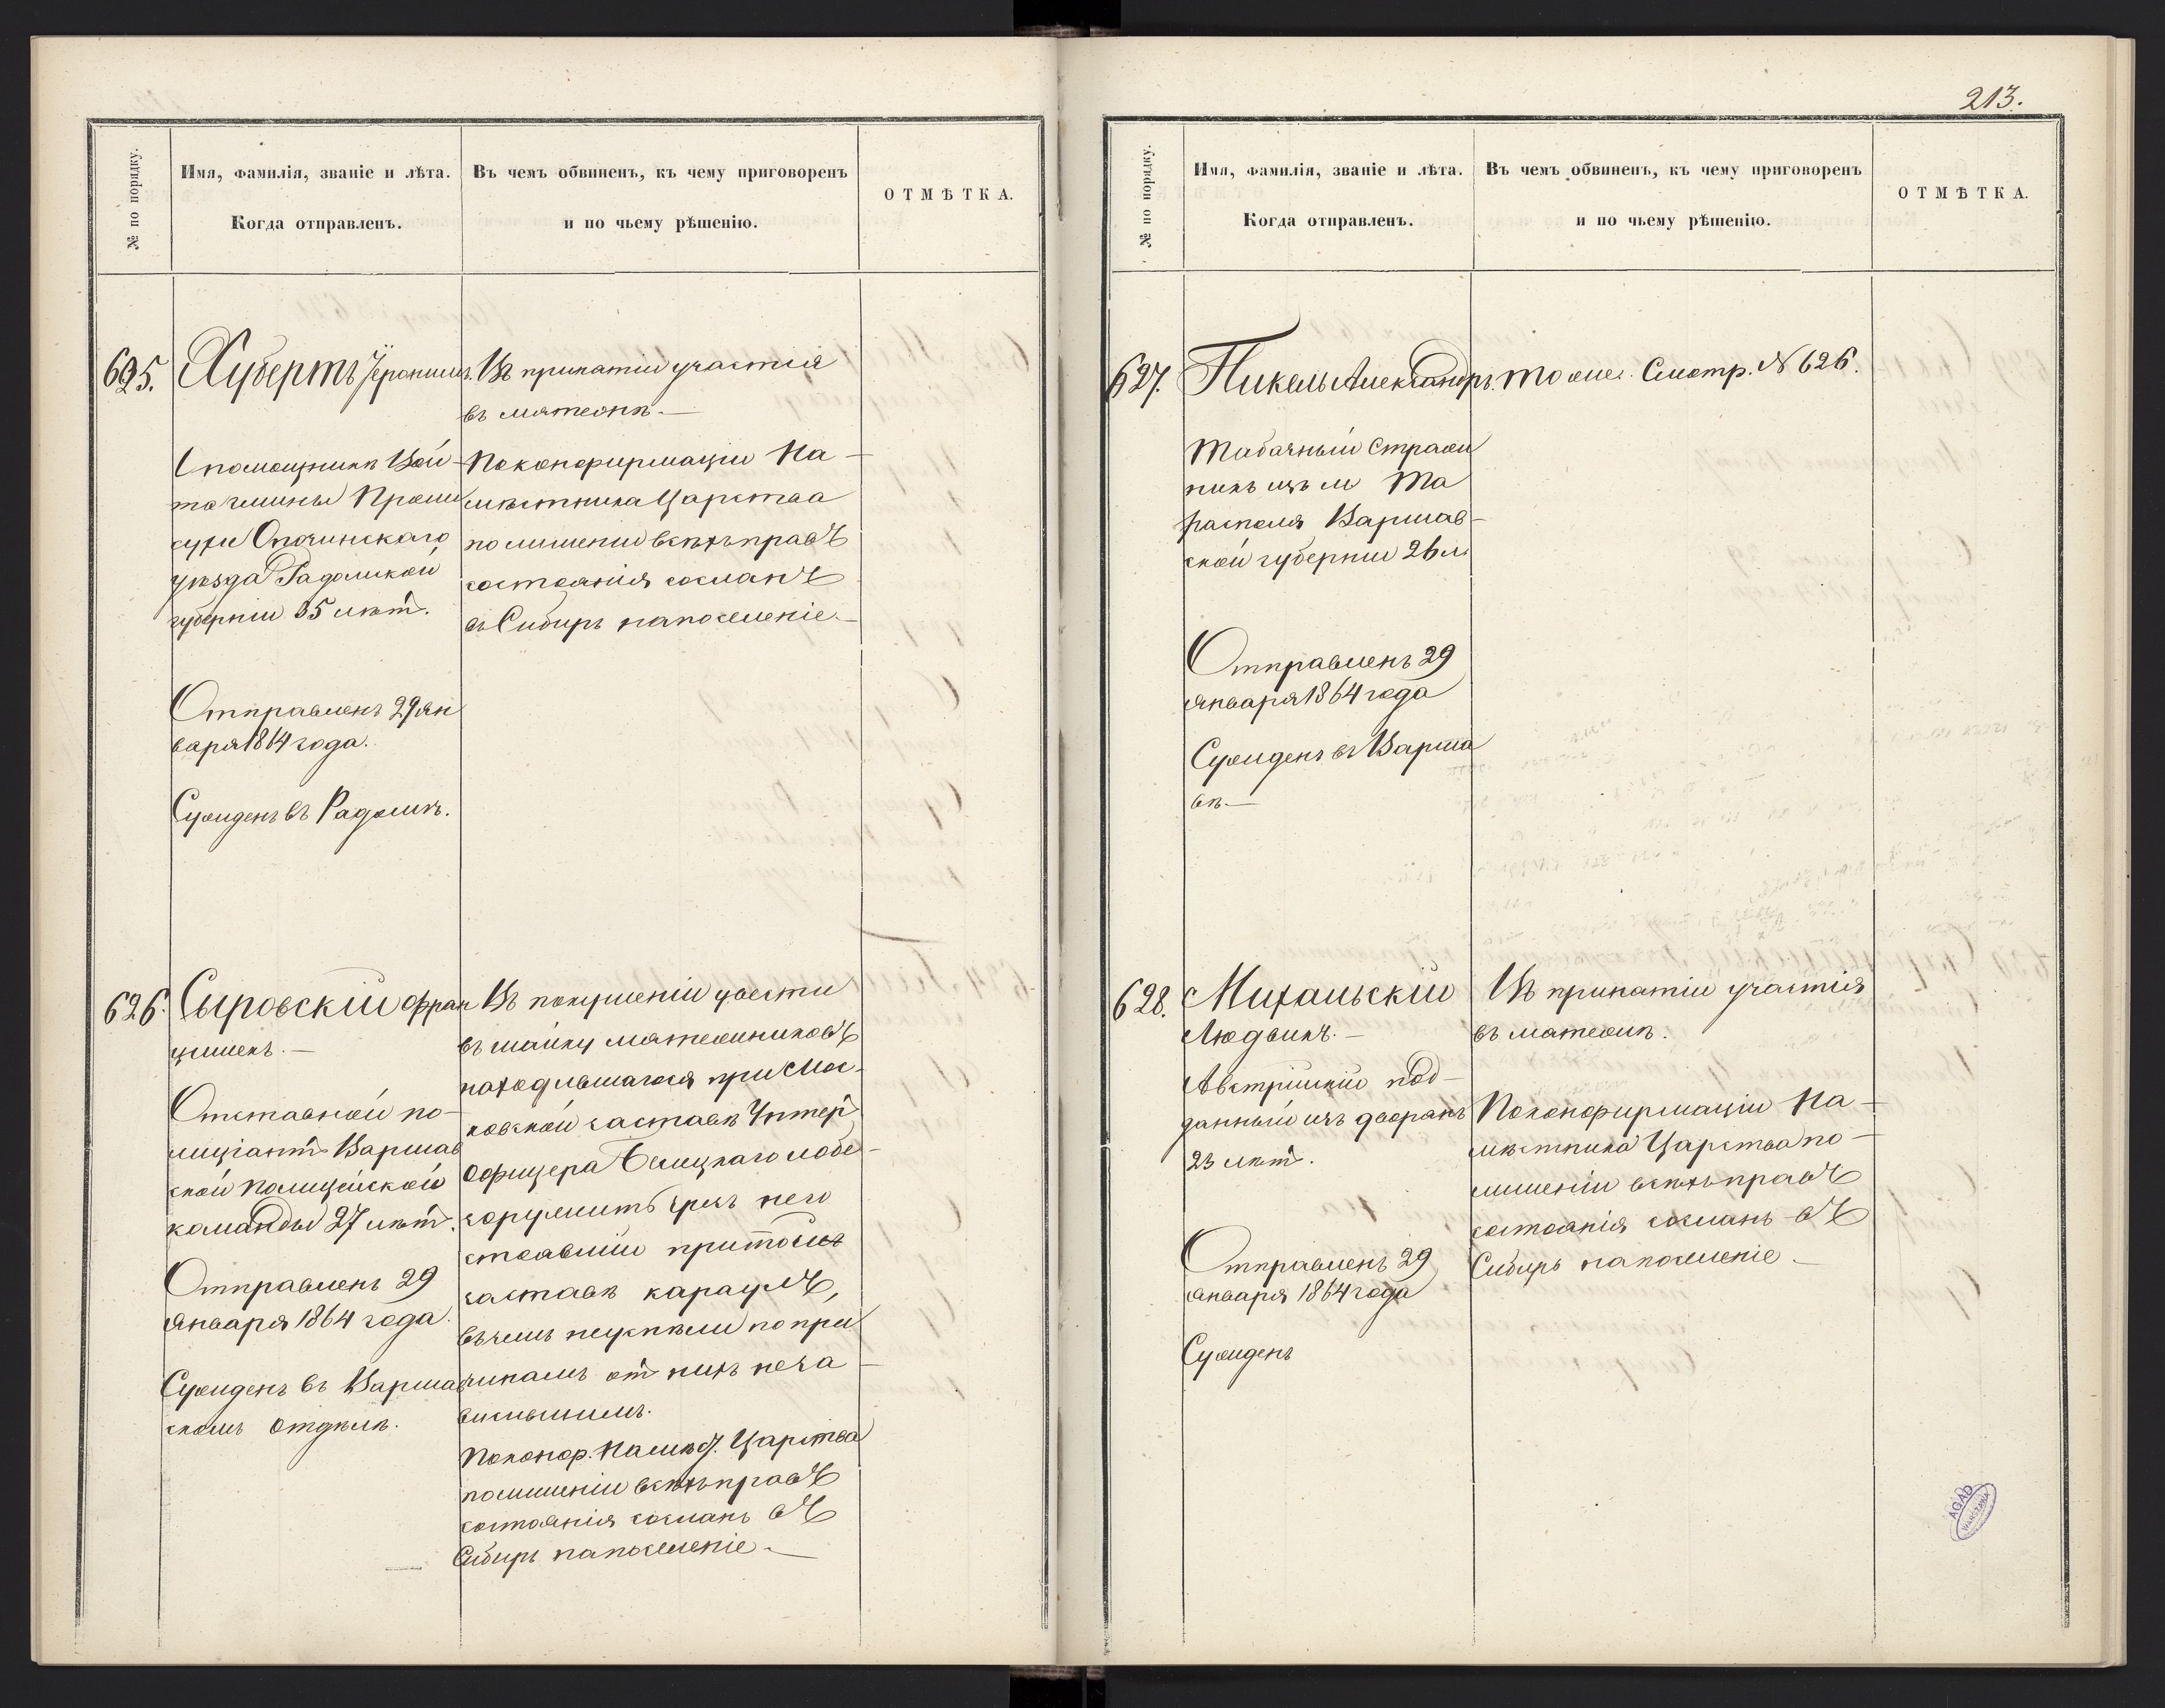 № по порядку.
Имя, фамилія, званіе и лѣта.
Когда отправленъ.
Въ чемъ обвиненъ, къ чему приговоренъ
и по чьему рѣшенію.
ОТМѢТКА.
625.
Хубертъ Іеронимъ.
помощникъ Вой-
та гмины
Опочинскаго
уѣзда Радомской
губерніи 35 лѣтъ.
Отправленъ 29 Ян
варя 1864 года.
Сужденъ въ Радомѣ.
Въ принятіи участія
въ мятежѣ.—
По конфирмаціи На-
мѣстника Царства
по лишеніи всѣхъ правъ
состоянія сосланъ
въ Сибирь на поселеніе.—
626.
Сыровскій Фран
цишекъ.—
Отставной по-
лиціантъ Варшав
ской Полицейской
команды 27 лѣтъ.
Отправленъ 29
Января 1864 года.
Сужденъ въ Варшав
скомъ Отдѣлѣ.
Въ покушеніи увести
въ шайку мятежниковъ
находившагося при Мос-
ковской заставѣ Унтеръ
Офицера Белицкаго и обе-
зоружить чрезъ него
стоявшій при той же
заставѣ караулъ,
въ чемъ не успѣли по при
чинамъ отъ нихъ неза-
висѣвшимъ.
По конф. Намѣст. Царства
по лишеніи всѣхъ правъ
состоянія сосланъ въ
Сибирь на поселеніе.—
213.
№ по порядку.
Имя, фамилія, званіе и лѣта.
Когда отправленъ.
Въ чемъ обвиненъ, къ чему приговоренъ
и по чьему рѣшенію.
ОТМѢТКА.
627.
Пикель Александръ.
Табачный Страж
никъ изъ м Та
располя Варшав-
ской губерніи 26 л.
Отправленъ 29
Января 1864 года
Сужденъ въ Варша
вѣ.—
тоже. Смотр. № 626.
628.
Михальскій
Людвикъ.—
Австрійскій под-
данный изъ дворянъ
23 лѣтъ.
Отправленъ 29
Января 1864 года
Сужденъ
Въ принятіи участія
въ мятежѣ.
По конфирмаціи На-
мѣстника Царства по-
лишеніи всѣхъ правъ
состоянія сосланъ въ
Сибирь на поселеніе.—
AGAD
WARSZAWA